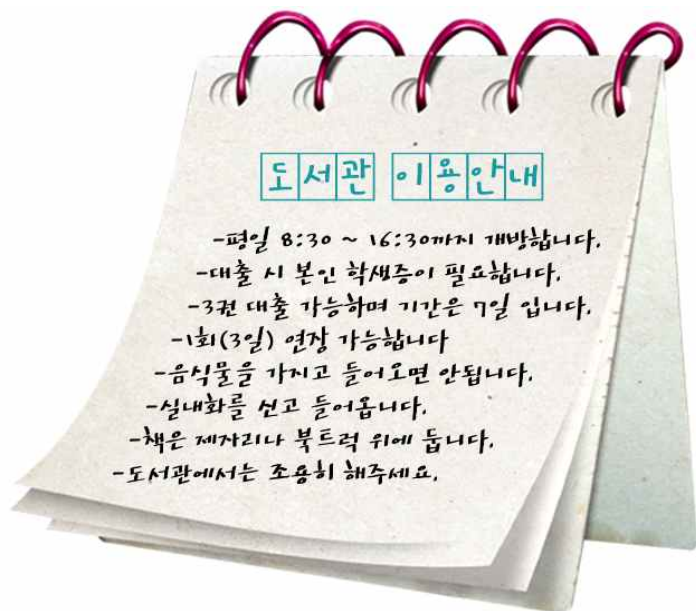 도서관 이용안내
-평일 8:30 ~ 16:30까지 개방합니다.
-대출 시 본인 학생증이 필요합니다.
-3권 대출 가능하며 기간은 7일 입니다.
-1회(3일) 연장 가능합니다
-음식물을 가지고 들어오면 안됩니다.
-실내화를 신고 들어옵니다.
-책은 제자리나 북트럭 위에 둡니다.
-도서관에서는 조용히 해주세요.